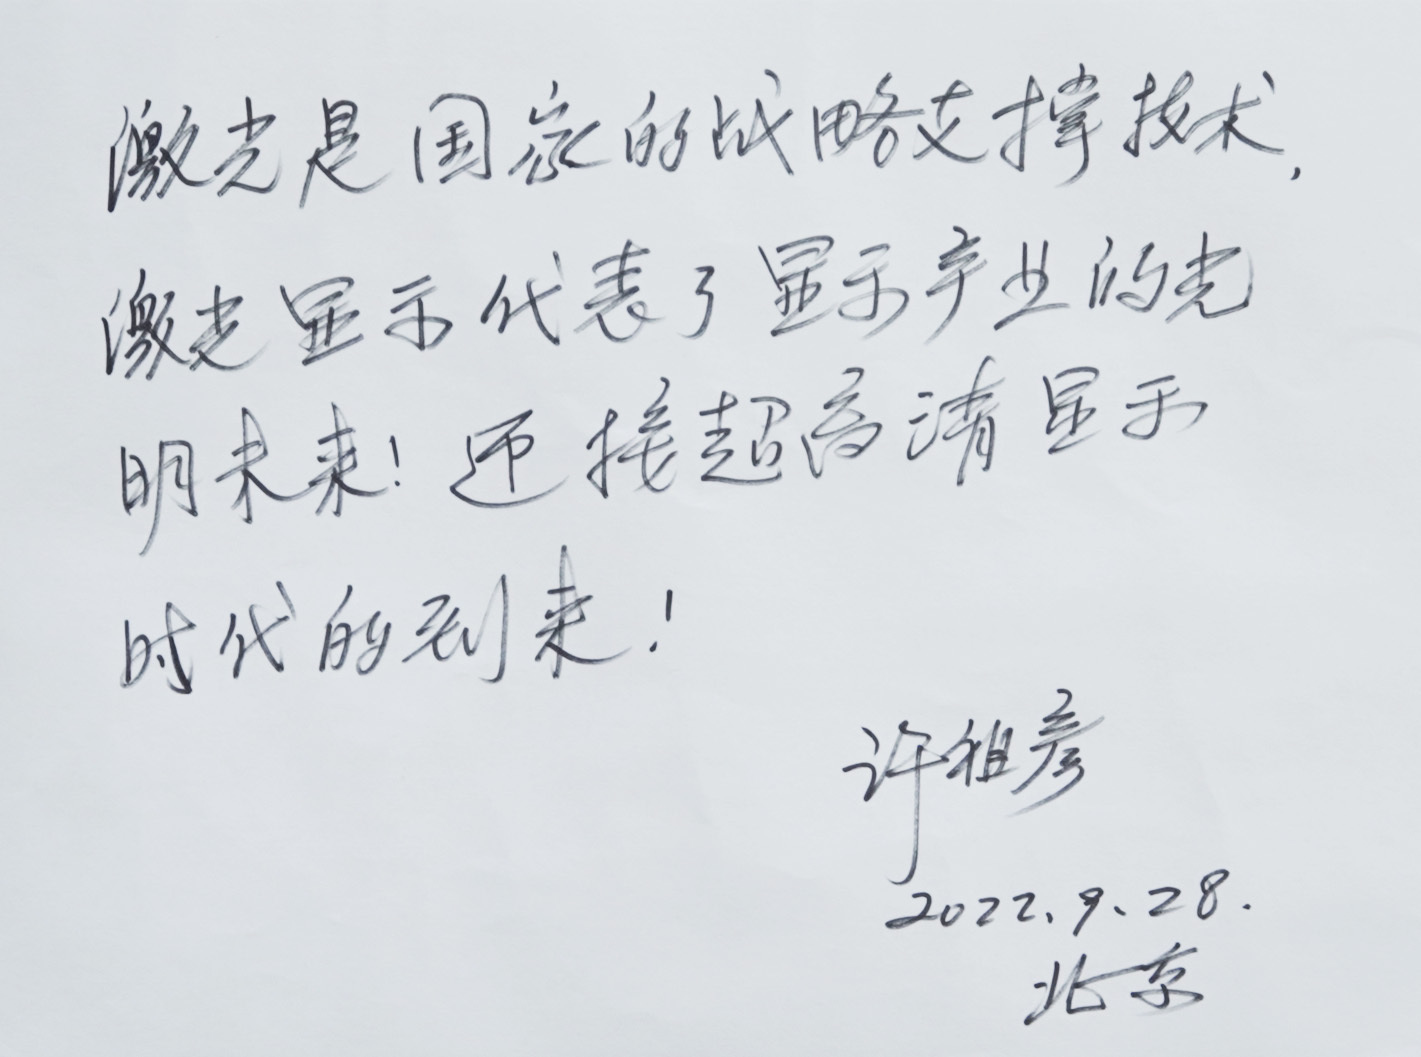 激光是国家的战略支撑技术,
激光显示代表了显示产业的光
明未来!迎接超高清显示
时代的到来!
许祖彦
2022.9.28.
北京